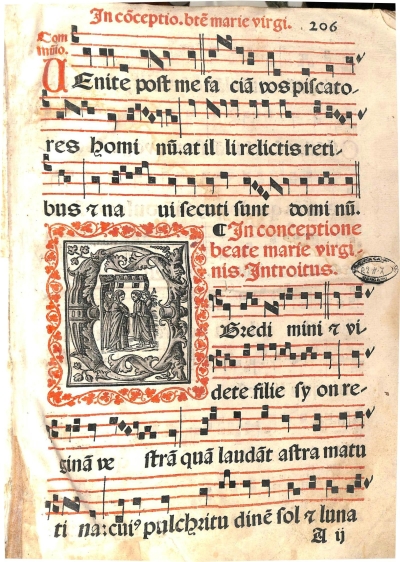 In cōceptio. btē marie virgi. 206
Com
munio.
UEnite post me fa ciā vos piscato-
res homi nū. at il li relictis reti-
bus ⁊ na ui secuti sunt domi nū.
¶ In conceptione
beate marie virgi-
nis. Introitus.
Egredi mini ⁊ vi
dete filie sy on re-
ginā ve strā quā laudāt astra matu
ti na: cuiꝰ pulchritu dinē sol ⁊ luna
A ij